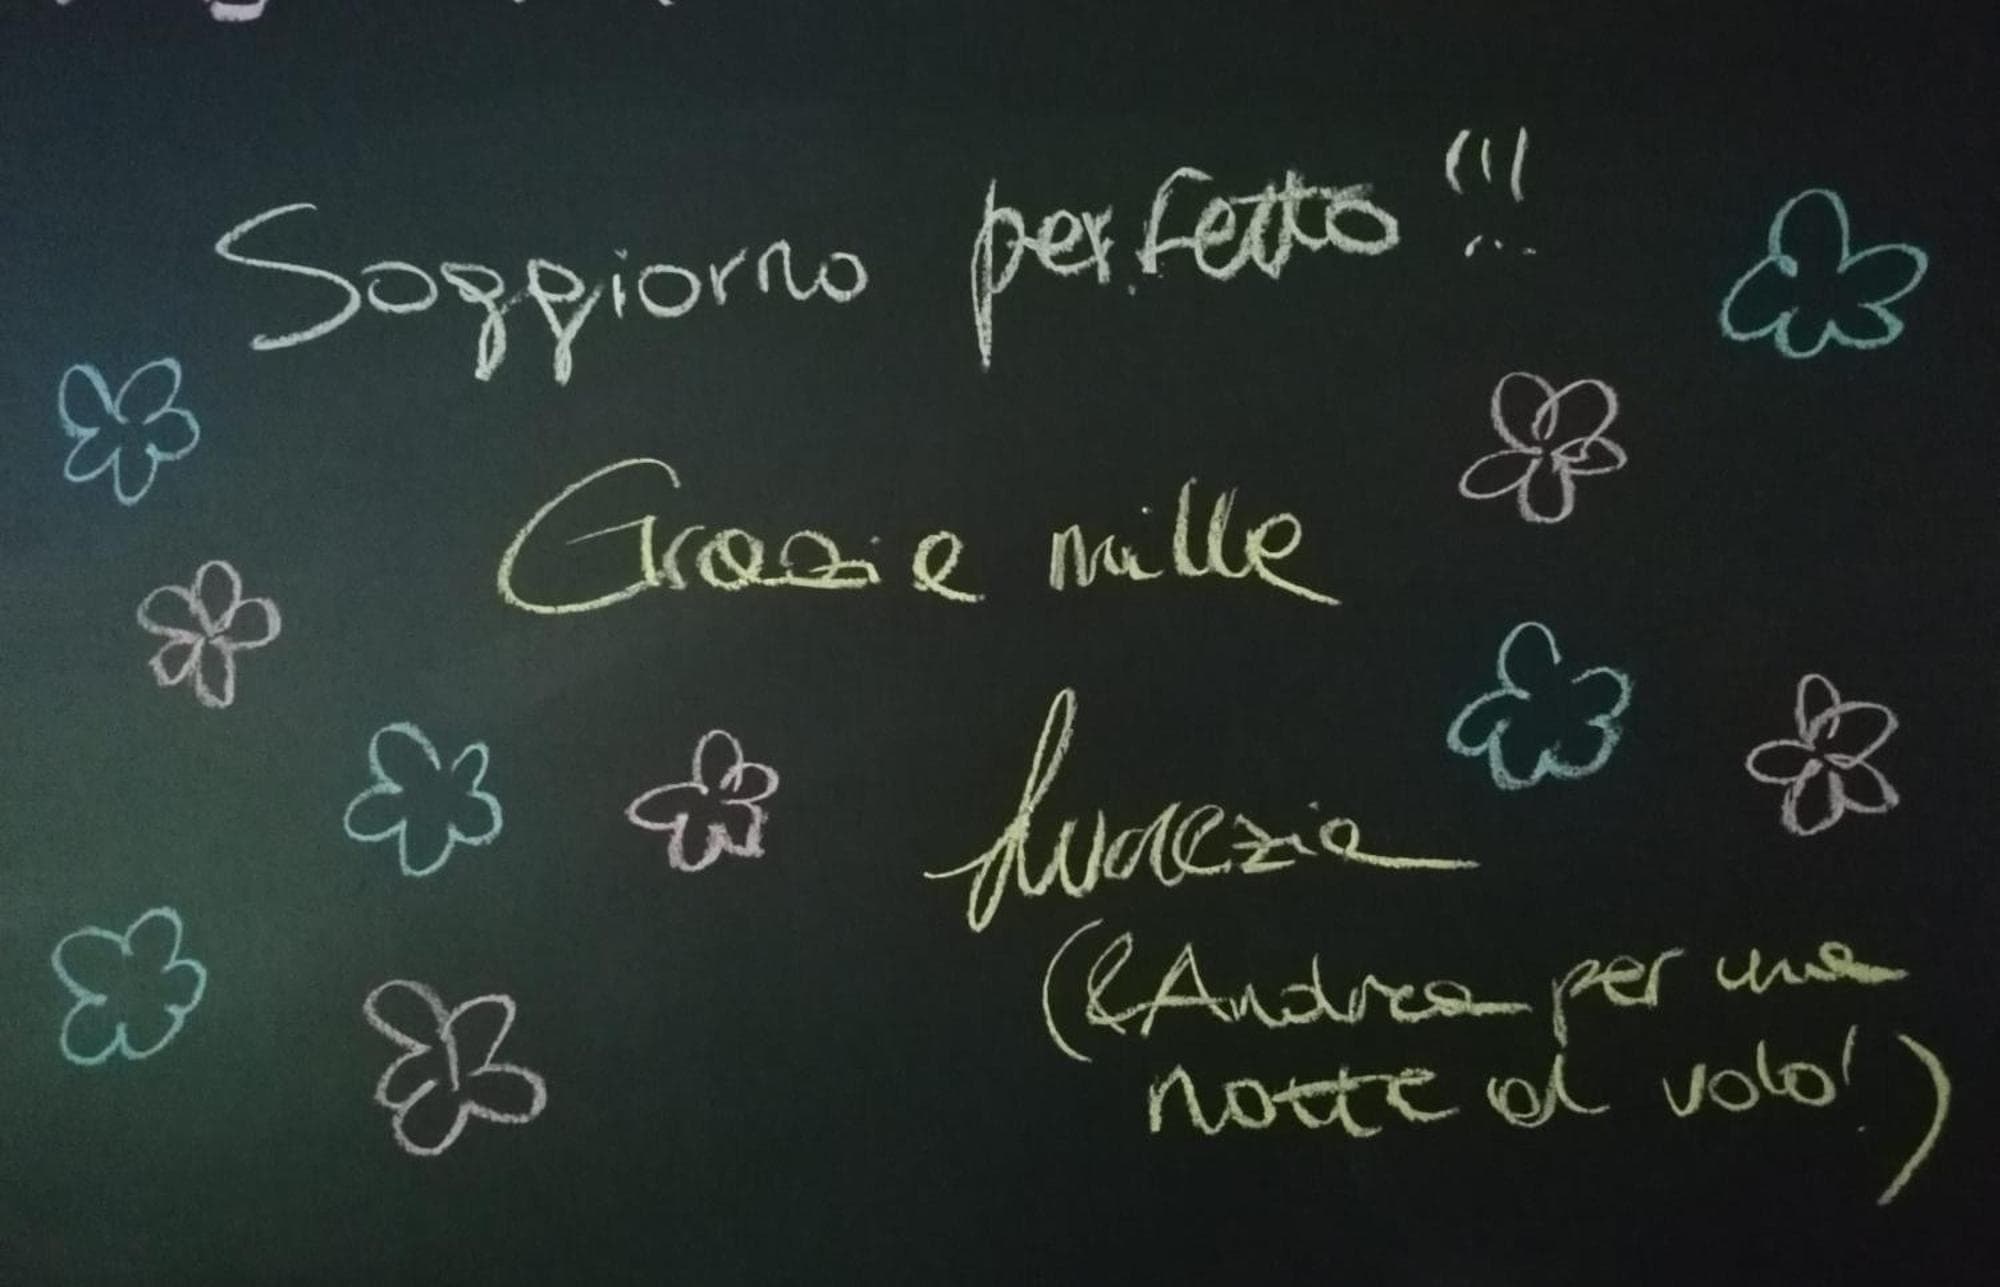 Soggiorno perfetto!!!
Grazie mille
Lucrezia
(& Andrea per una
notte al volo!)